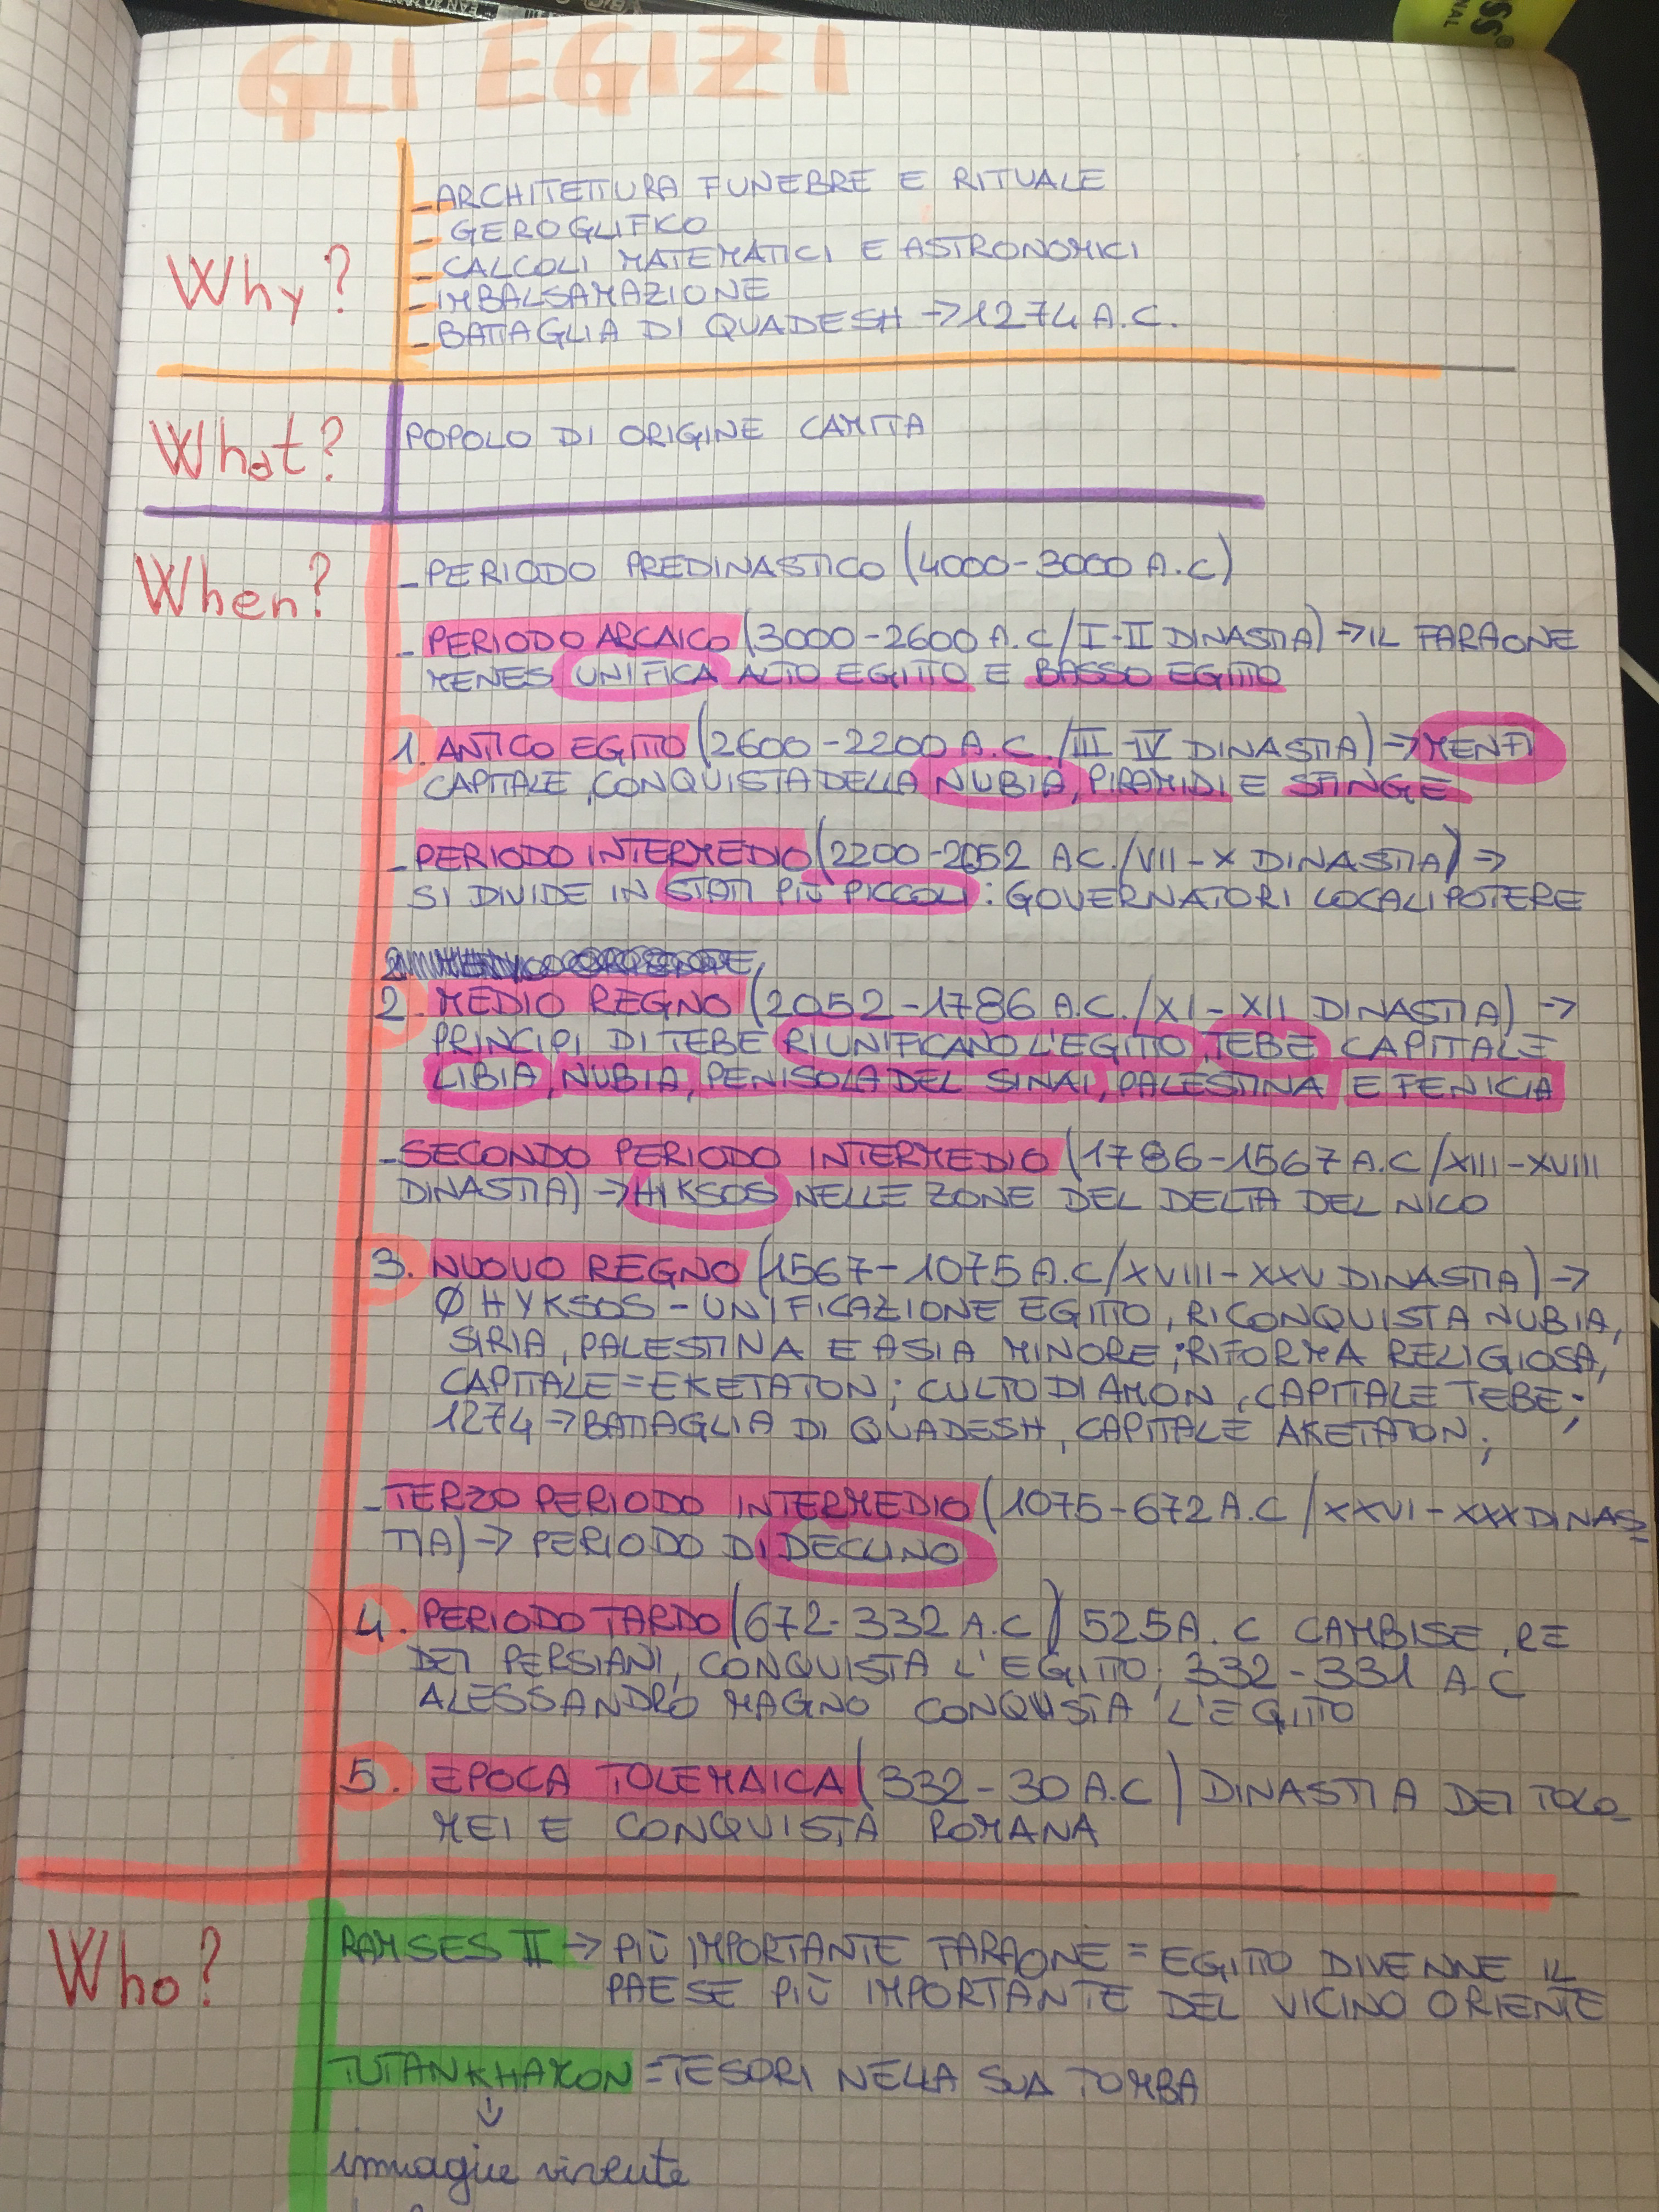 GLI EGIZI
- ARCHITETTURA FUNEBRE E RITUALE
- GEROGLIFICO
Why?
- CALCOLI MATEMATICI E ASTRONOMICI
- IMBALSAMAZIONE
- BATTAGLIA DI QUADESH → 1274 A.C.
What?
POPOLO DI ORIGINE CAMITA
When?
- PERIODO PREDINASTICO (4000-3000 A.C)
- PERIODO ARCAICO (3000-2600 A.C/I-II DINASTIA) → IL FARAONE
MENES UNIFICA ALTO EGITTO E BASSO EGITTO
1. ANTICO EGITTO (2600-2200 A.C./III-IV DINASTIA) → MENFI
CAPITALE, CONQUISTA DELLA NUBIA, PIRAMIDI E SFINGE
- PERIODO INTERMEDIO (2200-2052 A.C./VII-X DINASTIA) →
SI DIVIDE IN STATI PIÙ PICCOLI: GOVERNATORI LOCALI POTERE
2. MEDIO REGNO (2052-1786 A.C./XI-XII DINASTIA) →
PRINCIPI DI TEBE RIUNIFICANO L'EGITTO, TEBE CAPITALE
LIBIA, NUBIA, PENISOLA DEL SINAI, PALESTINA E FENICIA
- SECONDO PERIODO INTERMEDIO (1786-1567 A.C/XIII-XVIII
DINASTIA) → HIKSOS NELLE ZONE DEL DELTA DEL NICO
3. NUOVO REGNO (1567-1075 A.C/XVIII-XXV DINASTIA) →
Ø HYKSOS - UNIFICAZIONE EGITTO, RICONQUISTA NUBIA,
SIRIA, PALESTINA E ASIA MINORE; RIFORMA RELIGIOSA,
CAPITALE = EKETATON; CULTO DI AMON, CAPITALE TEBE;
1274 → BATTAGLIA DI QUADESH, CAPITALE AKETATON;
- TERZO PERIODO INTERMEDIO (1075-672 A.C/XXVI-XXX DINAS-
TIA) → PERIODO DI DECLINO
4. PERIODO TARDO (672-332 A.C) 525 A.C CAMBISE, RE
DEI PERSIANI, CONQUISTA L'EGITTO; 332-331 A C
ALESSANDRO MAGNO CONQUISTA L'EGITTO
5. EPOCA TOLEMAICA (332-30 A.C) DINASTIA DEI TOLO-
MEI E CONQUISTA ROMANA
Who?
RAMSES II → PIÙ IMPORTANTE FARAONE = EGITTO DIVENNE IL
PAESE PIÙ IMPORTANTE DEL VICINO ORIENTE
TUTANKHAMON = TESORI NELLA SUA TOMBA
↓
immagine vivente